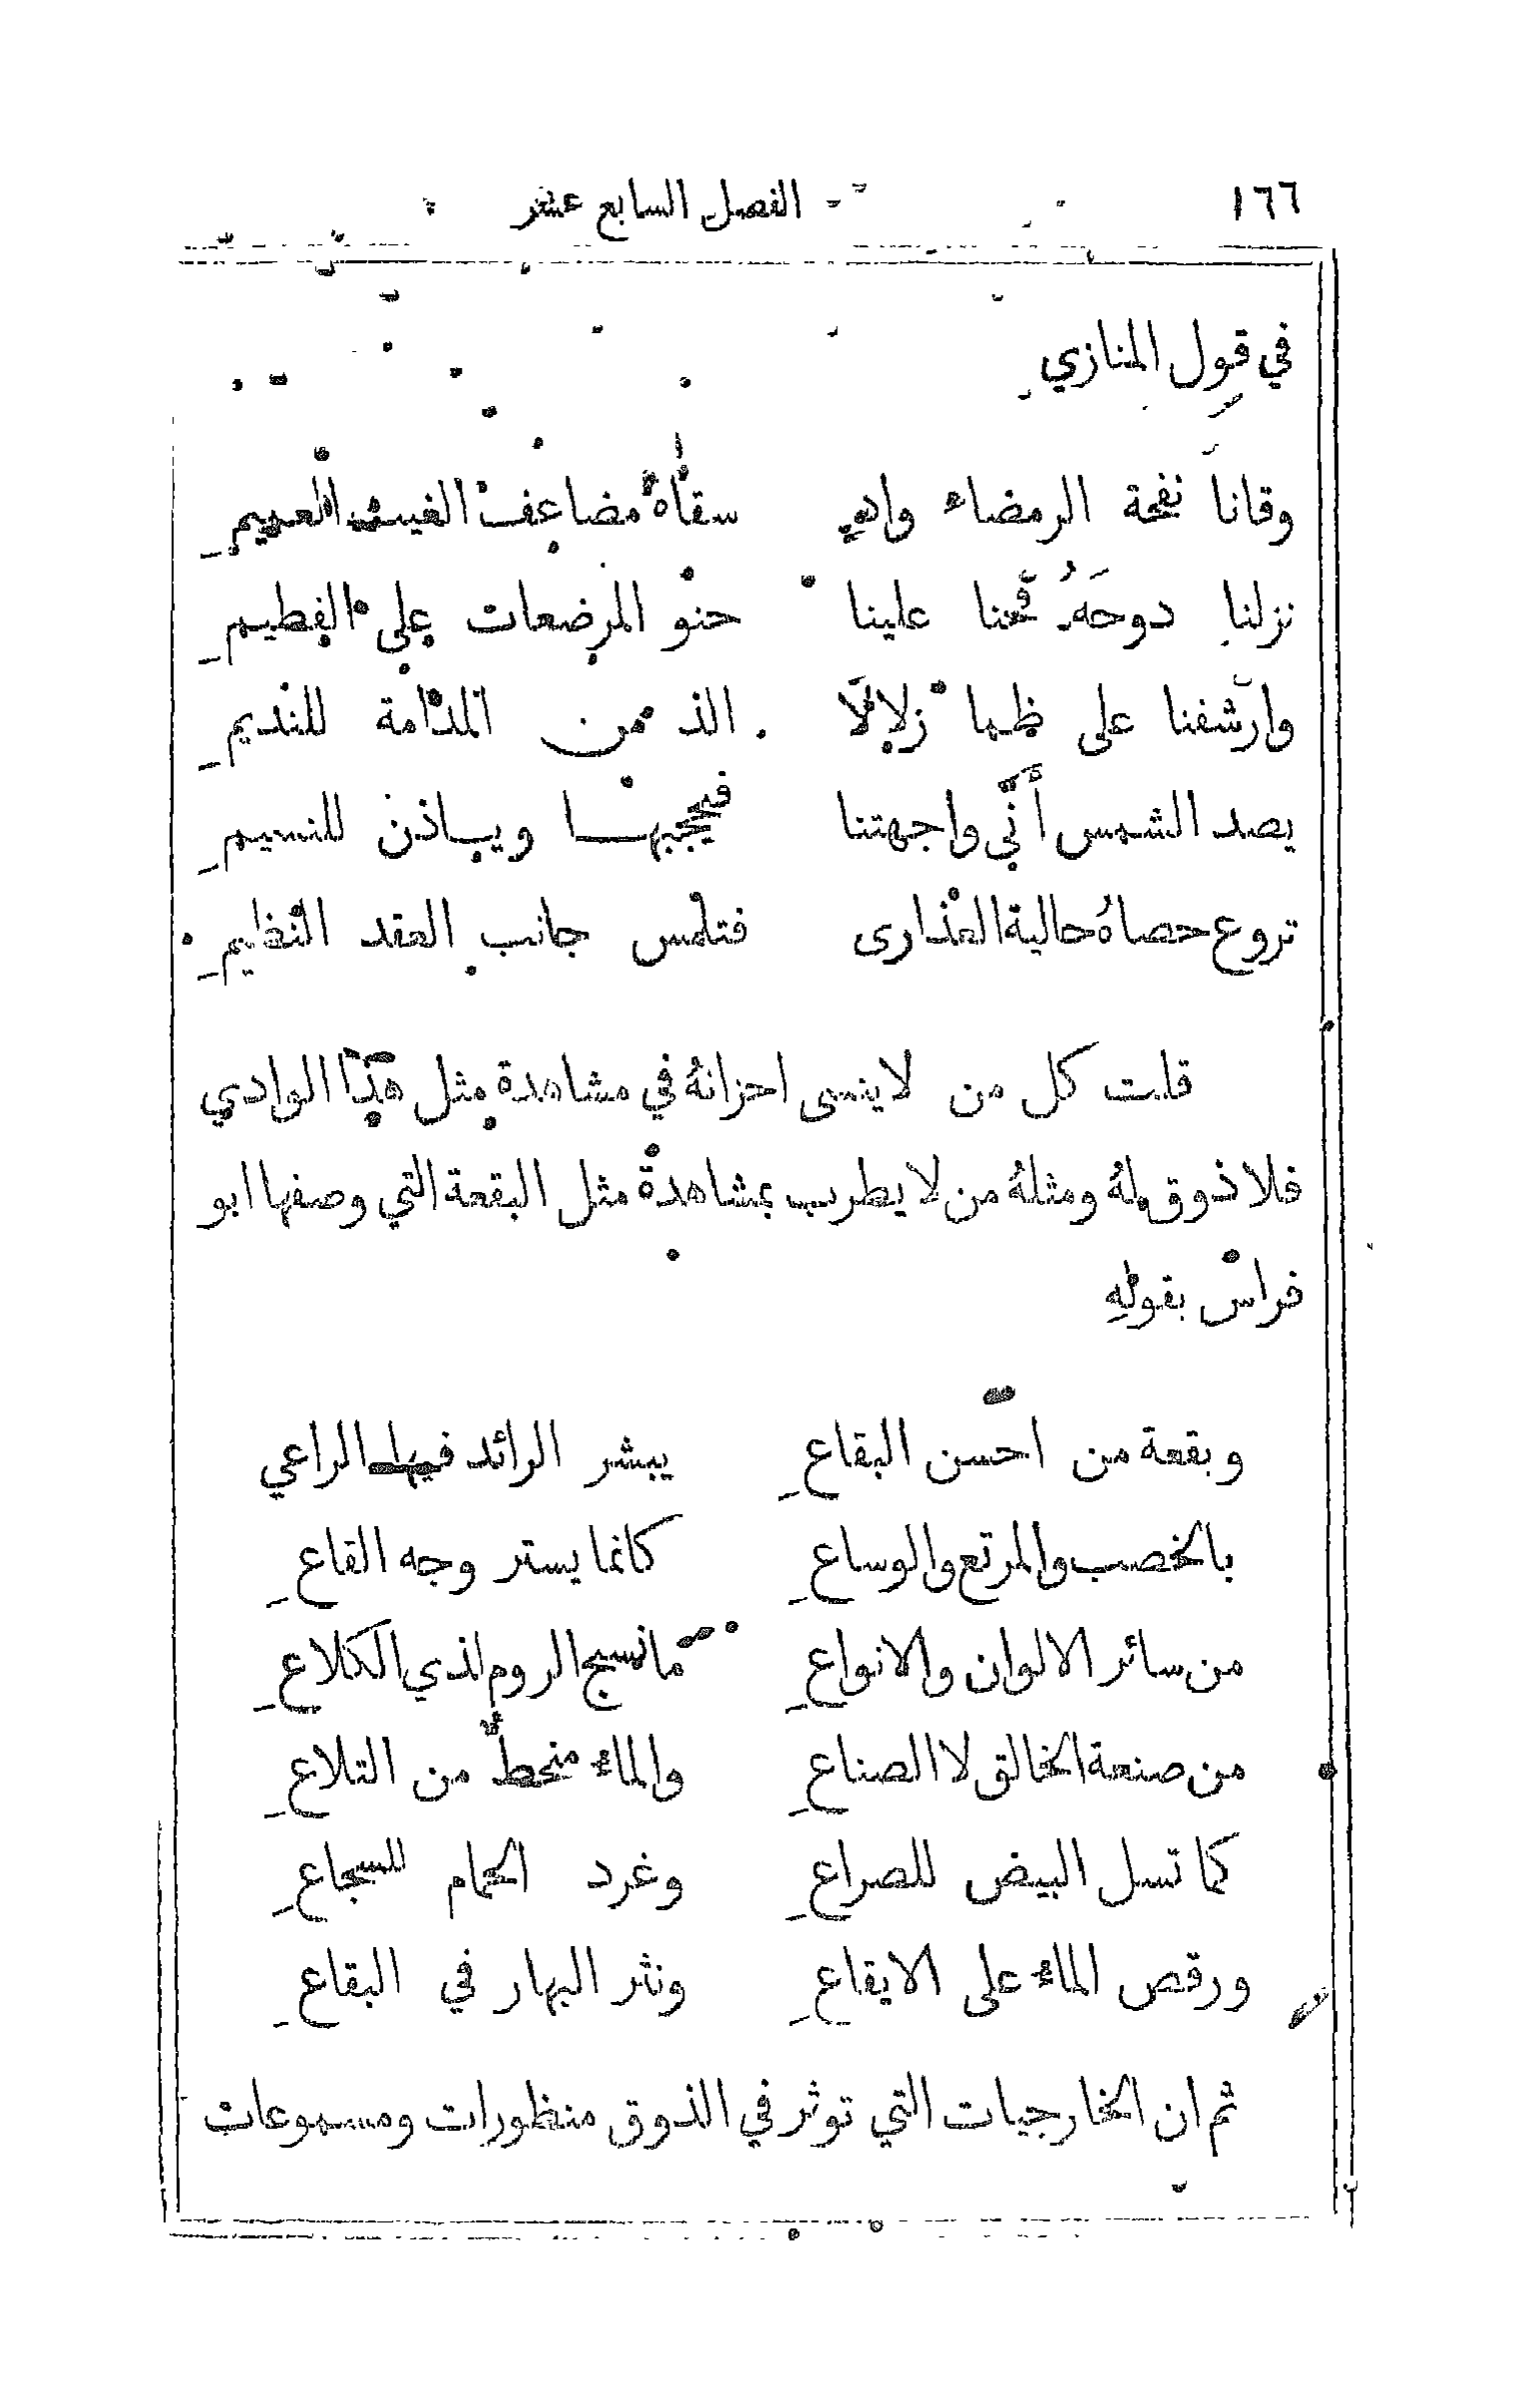 ١٦٦ الفصل السابع عشر
في قول المنازي
وقانا نفحة الرمضاء وادٍ سقاهُ مضاعف الغيث العميمِ
نزلنا دوحَهُ فحنا علينا حنو المرضعات على الفطيمِ
وارشفنا على ظما زلالًا الذ من المدامة للنديمِ
يصد الشمس أنَّي واجهتنا فيحجبها وياذن للنسيمِ
تروع حصاهُ حالية العذارى فتلمس جانب العقد النظيمِ
قلت كل من لا ينسى احزانهُ في مشاهدة مثل هذا الوادي
فلا ذوق لهُ ومثلهُ من لا يطرب بمشاهدة مثل البقعة التي وصفها ابو
فراس بقولهِ
وبقعة من احسن البقاعِ يبشر الرائد فيها الراعي
بالخصب والمرتع والوساعِ كانما يستر وجه القاعِ
من سائر الالوان والانواعِ ما نسج الروم لذي الكلاعِ
من صنعة الخالق لا الصناعِ والماء منحطٌ من التلاعِ
كما تسل البيض للصراعِ وغرد الحمام للسجاعِ
ورقص الماء على الايقاعِ ونثر البهار في البقاعِ
ثم ان الخارجيات التي توثر في الذوق منظورات ومسموعات